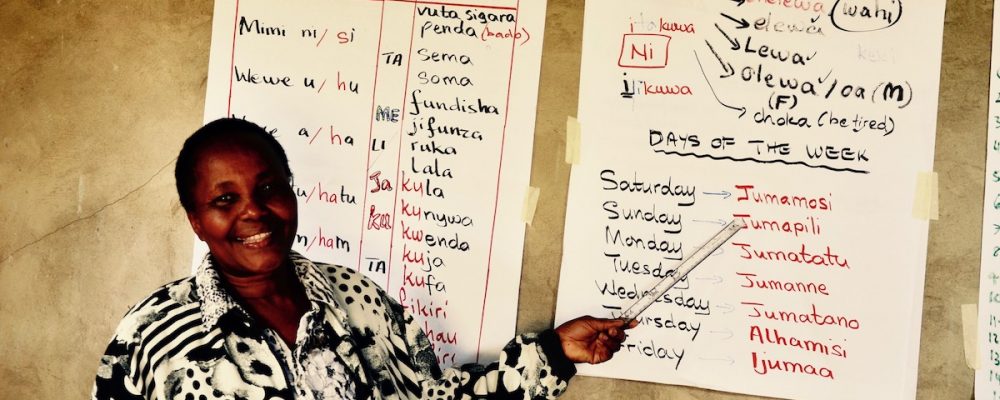 Mimi ni/si
Wewe u/hu
a/ha
u/hatu
m/ham
TA
ME
LI
Ja
ku
TA
vuta sigara
penda (bado)
Sema
Soma
fundisha
jifunza
ruka
lala
kula
kunywa
kwenda
kuja
kufa
fikiri
hau
elewa (wahi)
i takuwa
elewa
Ni
Lewa
ilikuwa
olewa/oa (M)
(F)
choka (be tired)
DAYS OF THE WEEK
Saturday → Jumamosi
Sunday → Jumapili
Monday Jumatatu
Tuesday Jumanne
Wednesday Jumatano
Thursday → Alhamisi
Friday → Ijumaa